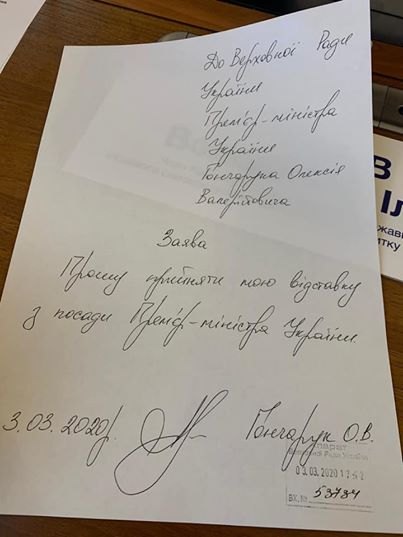 До Верховної Ради
України
Прем'єр-міністра
України
Гончарука Олексія
Валерійовича
Заява
Прошу прийняти мою відставку
з посади Прем'єр-міністра України.
3.03.2020р.
Гончарук О.В.
Апарат
Верховної Ради України
03.03.2020
ВХ.№ 53784